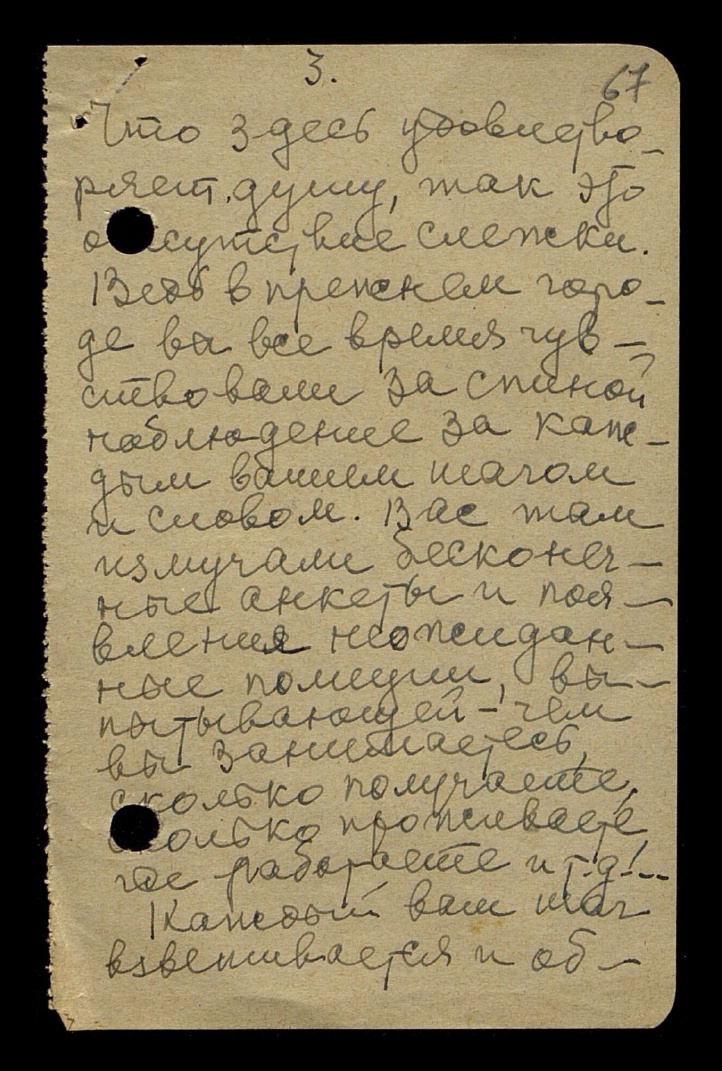 3.
67
Что здесь удовлетво-
ряет душу, так это
отсутствие слежки.
Ведь в прежнем горо-
де вы все время чув-
ствовали за спиной
наблюдение за каж-
дым вашим шагом
и словом. Вас там
измучали бесконеч-
ные анкеты и поя-
вления неожидан-
ные полиции, вы-
пытывающей - чем
вы занимаетесь,
сколько получаете,
сколько проживаете,
где работаете и т.д!..
Каждый ваш шаг
взвешивается и об-